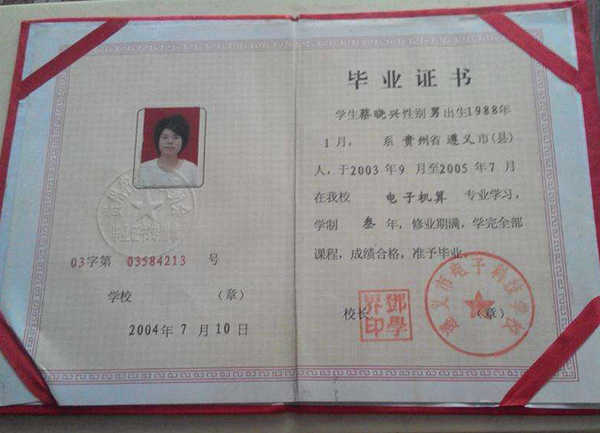 03字第 03584213 号
学校 (章)
2004年 7 月 10 日
毕业证书
学生蔡晓兴性别 男 出生1988年
1月, 系 贵州省 遵义市(县)
人,于2003年9月至2005年7月
在我校 电子机算 专业学习,
学制 叁 年,修业期满,学完全部
课程,成绩合格,准予毕业。
校长 (章)
鄧學
界印
遵义市电子科技学校